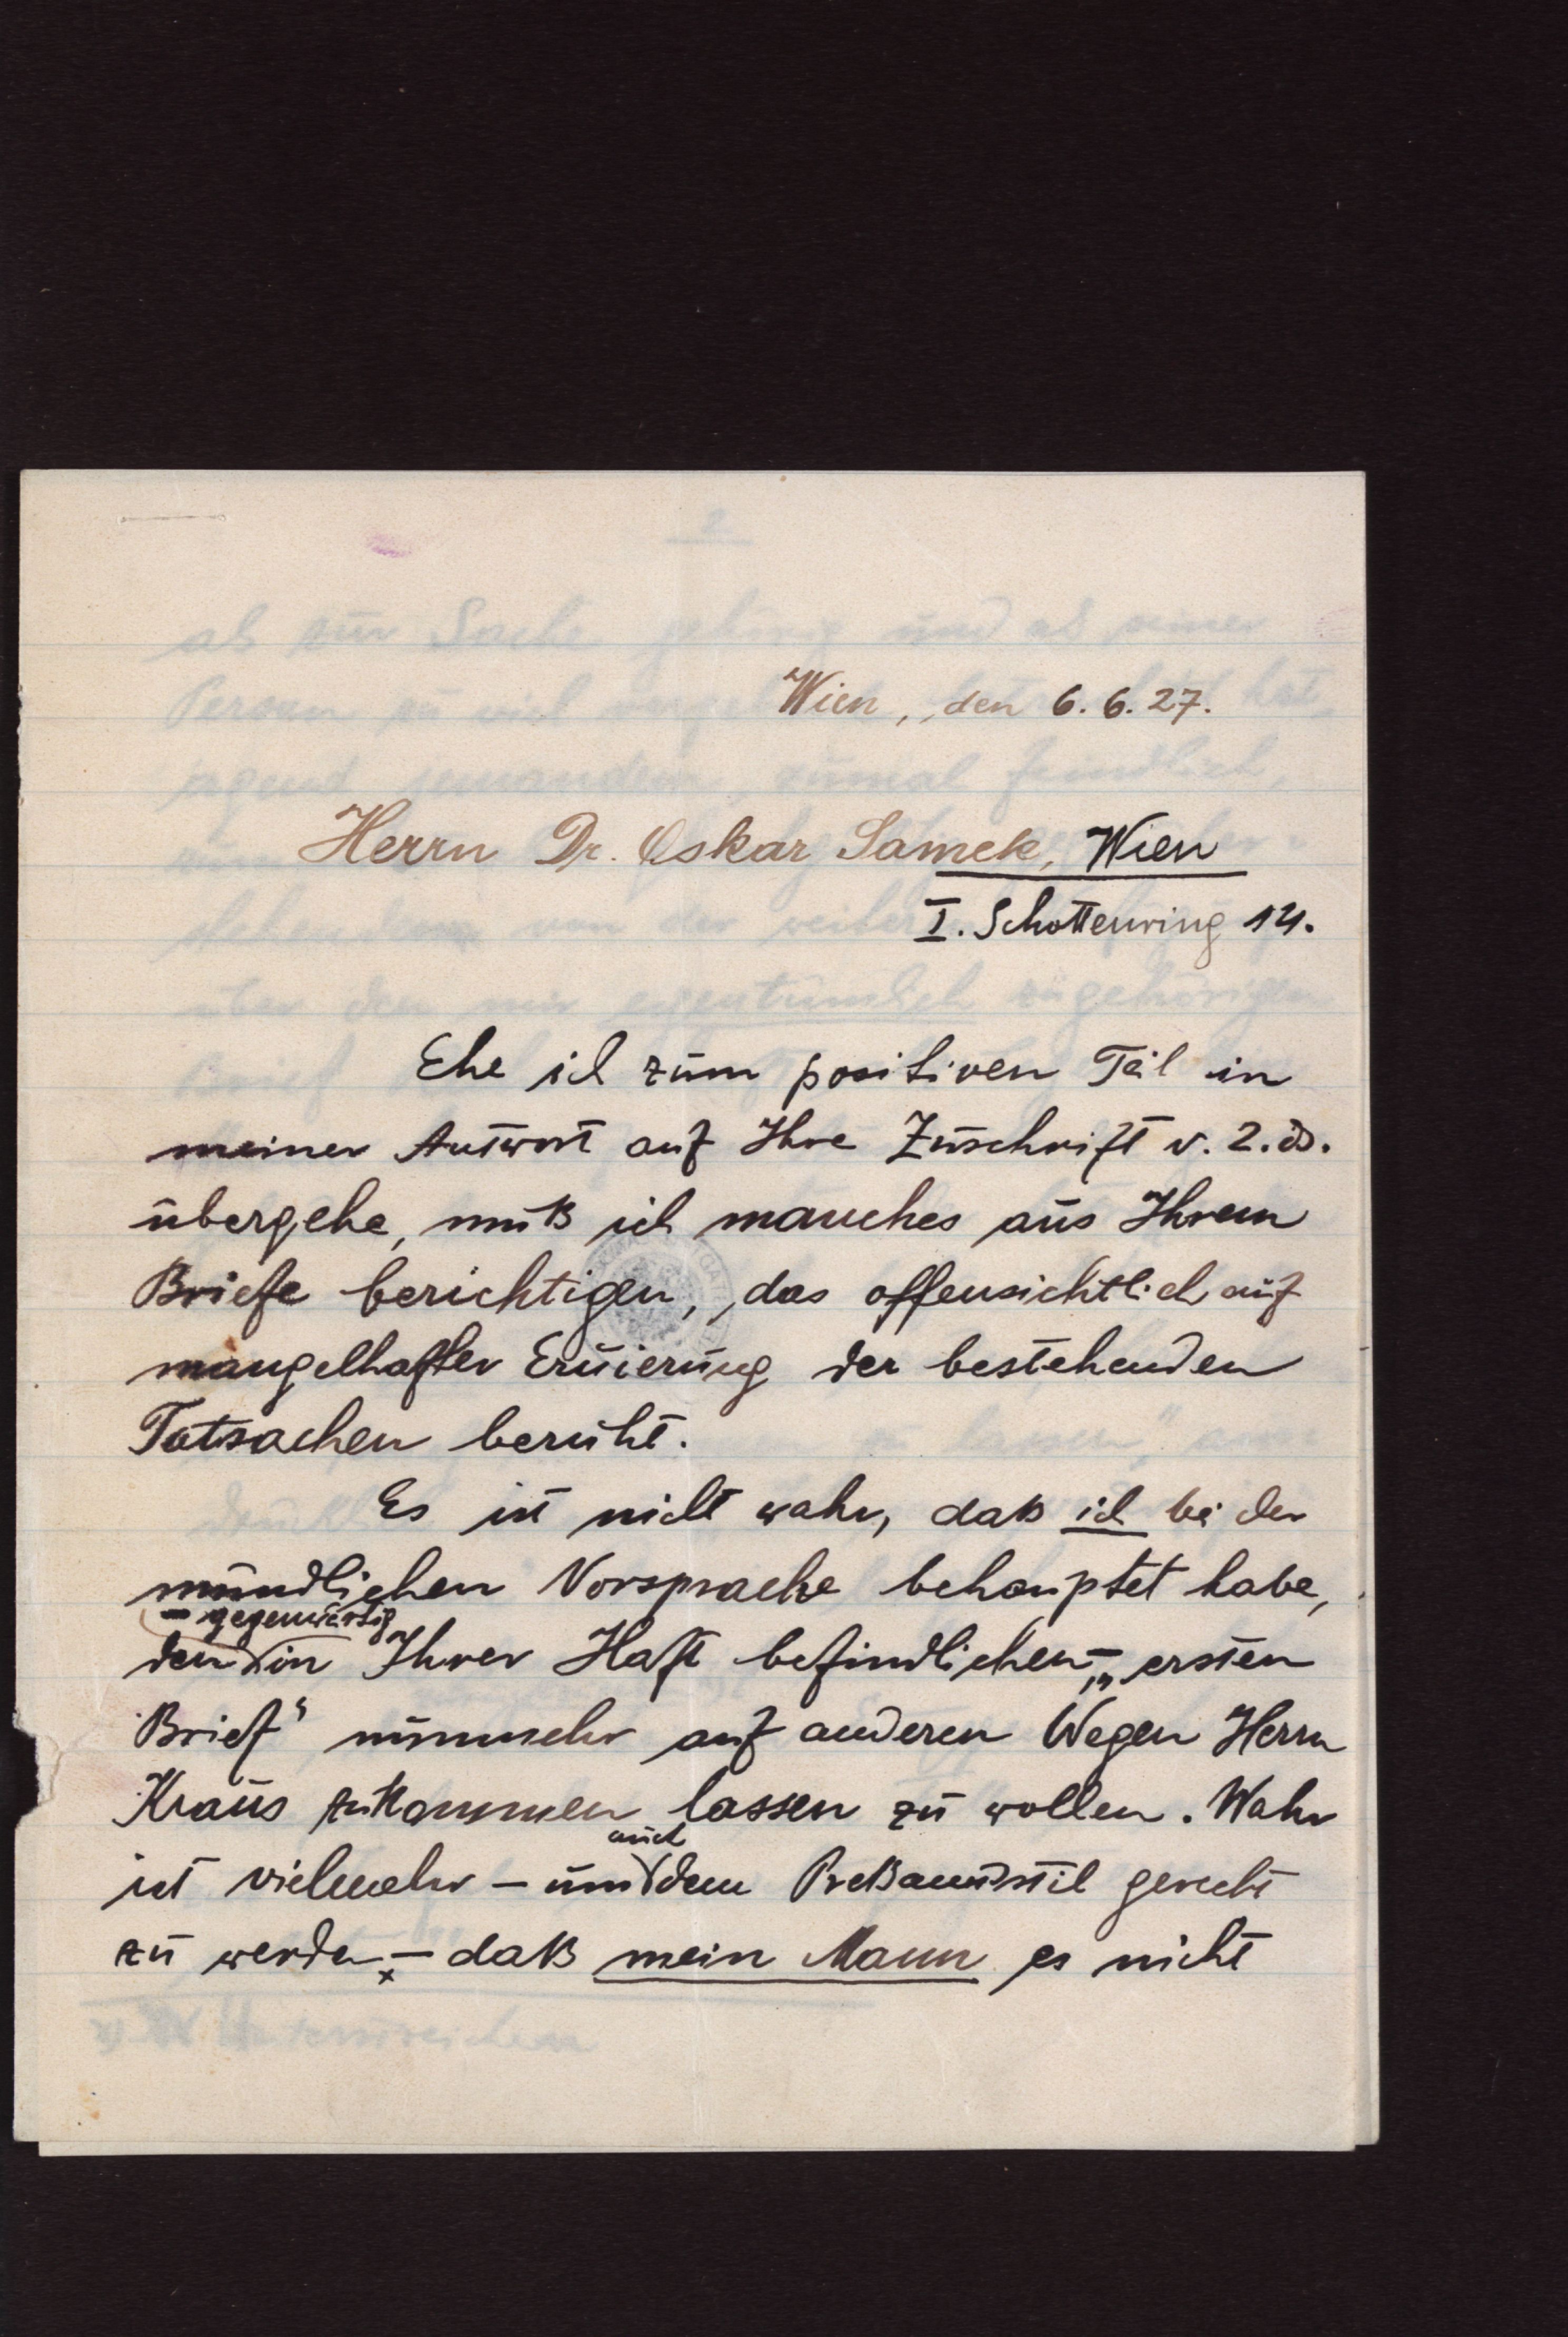 Wien, den 6. 6. 27.
Herrn Dr. Oskar Samek, Wien
I. Schottenring 14.
Ehe ich zum positiven Teil in
meiner Antwort auf Ihre Zuschrift v. 2. ds.
übergehe, muß ich manches aus Ihrem
Briefe berichtigen, das offensichtlich auf
mangelhafter Eruierung der bestehenden
Tatsachen beruht.
Es ist nicht wahr, daß ich bei der
mündlichen Vorsprache behauptet habe,
– gegenwärtig
den in Ihrer Haft befindlichen – „ersten
Brief“ nunmehr auf anderen Wegen Herrn
Kraus zukommen lassen zu wollen. Wahr
auch
ist vielmehr – um dem Preßamtsstil gerecht
zu werden – daß mein Mann es nicht